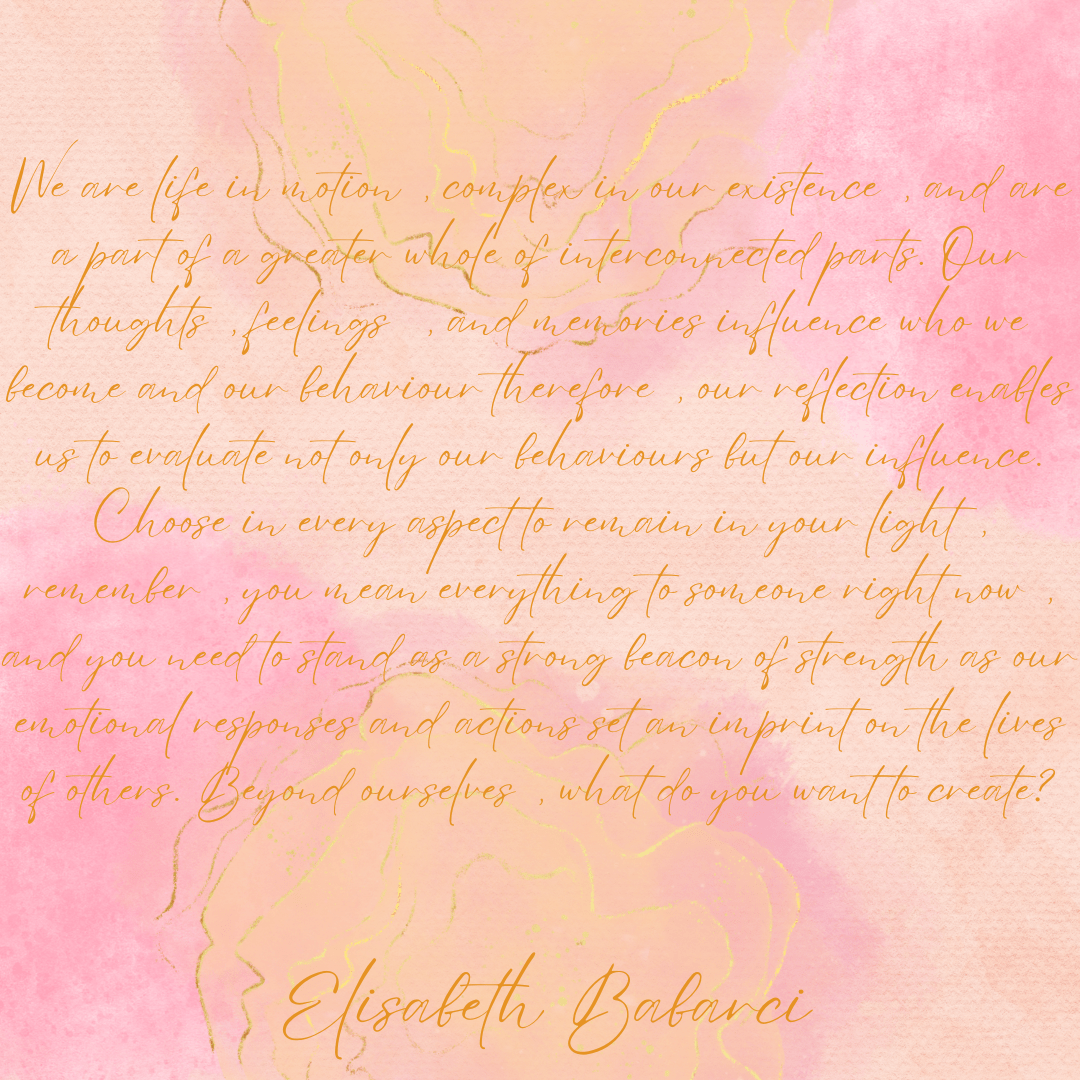 We are life in motion , complex in our existence , and are
a part of a greater whole of interconnected parts. Our
thoughts , feelings , and memories influence who we
become and our behaviour therefore , our reflection enables
us to evaluate not only our behaviours but our influence.
Choose in every aspect to remain in your light ,
remember , you mean everything to someone right now ,
and you need to stand as a strong beacon of strength as our
emotional responses and actions set an imprint on the lives
of others. Beyond ourselves , what do you want to create?
Elisabeth Babarci